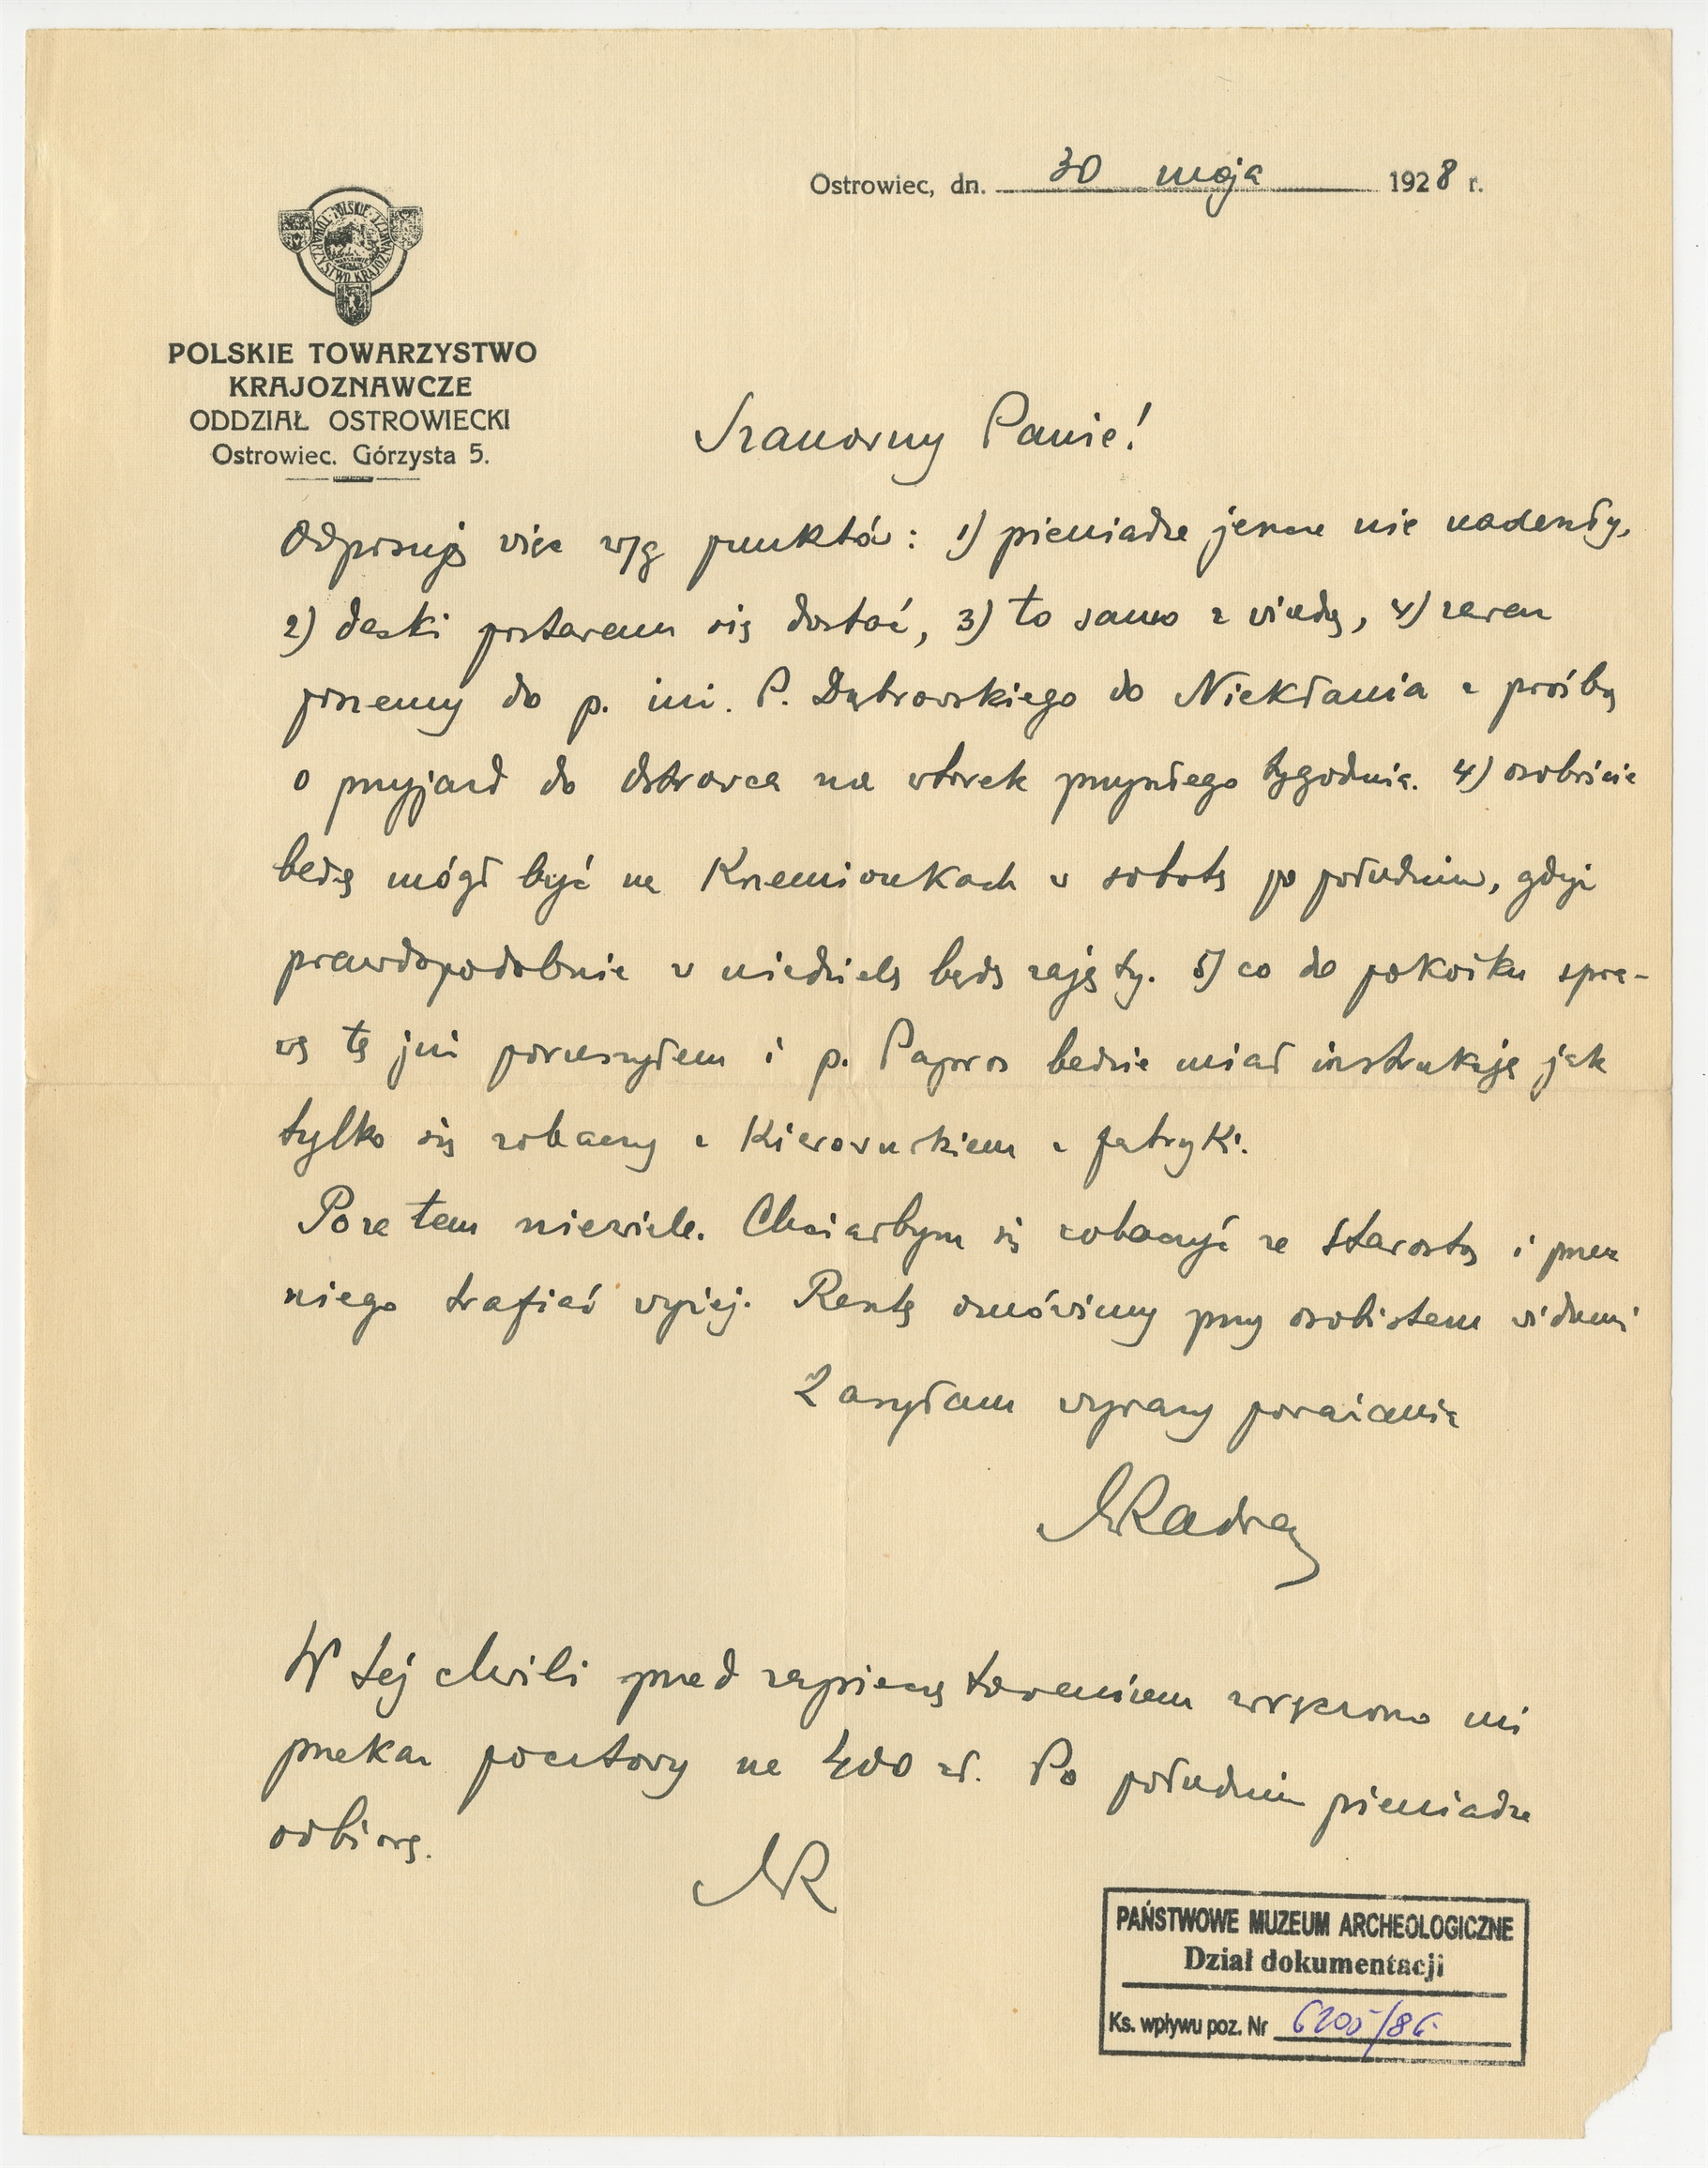 Ostrowiec, dn. 30 maja 1928 r.
POLSKIE TOWARZYSTWO KRAJOZNAWCZE
POLSKIE TOWARZYSTWO
KRAJOZNAWCZE
ODDZIAŁ OSTROWIECKI
Ostrowiec. Górzysta 5.
Szanowny Panie!
Odpisuję więc w/g punktów: 1) pieniądze jeszcze nie nadeszły,
2) deski postaram się dostać, 3) to samo z windą, 4) zaraz
piszemy do p. inż. P. Dąbrowskiego do Niekłania z prośbą
o przyjazd do Ostrowca na wtorek przyszłego tygodnia. 4) osobiście
będę mógł być na Krzemionkach w sobotę po południu, gdyż
prawdopodobnie w niedzielę będę zajęty. 5) co do pokoiku spra-
wę tę już poruszyłem i p. Papros będzie miał instrukcję jak
tylko się zobaczy z Kierownikiem z fabryki.
Poza tem niewiele. Chciałbym się zobaczyć ze Starostą i przez
niego trafiać wyżej. Resztę omówimy przy osobistem widzeniu
Zasyłam wyrazy poważania
MRadwan
W tej chwili przed zapieczętowaniem wręczono mi
przekaz pocztowy na 400 zł. Po południu pieniądze
odbiorę.
MR
PAŃSTWOWE MUZEUM ARCHEOLOGICZNE
Dział dokumentacji
Ks. wpływu poz. Nr 6205/86